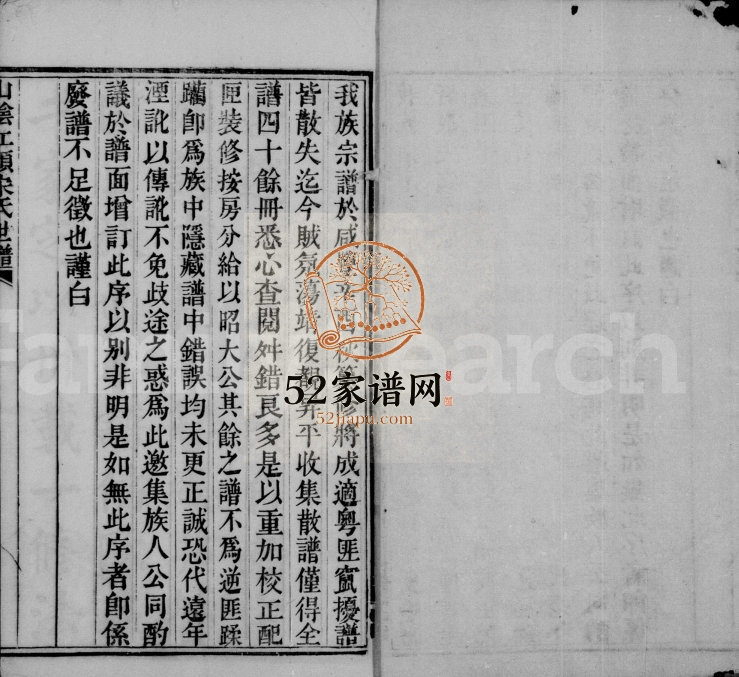 我族宗譜於咸豐辛酉秋纂修將成適粵匪竄擾譜
皆散失迄今賊氛蕩靖復覩昇平收集散譜僅得全
譜四十餘冊悉心查閱舛錯良多是以重加校正配
匣裝修按房分給以昭大公其餘之譜不爲逆匪蹂
躪卽爲族中隱藏譜中錯誤均未更正誠恐代遠年
湮訛以傳訛不免歧途之惑爲此邀集族人公同酌
議於譜面增訂此序以别非明是如無此序者卽係
廢譜不足徵也謹白
山陰江頭宋氏世譜
52家谱网
52jiapu.com